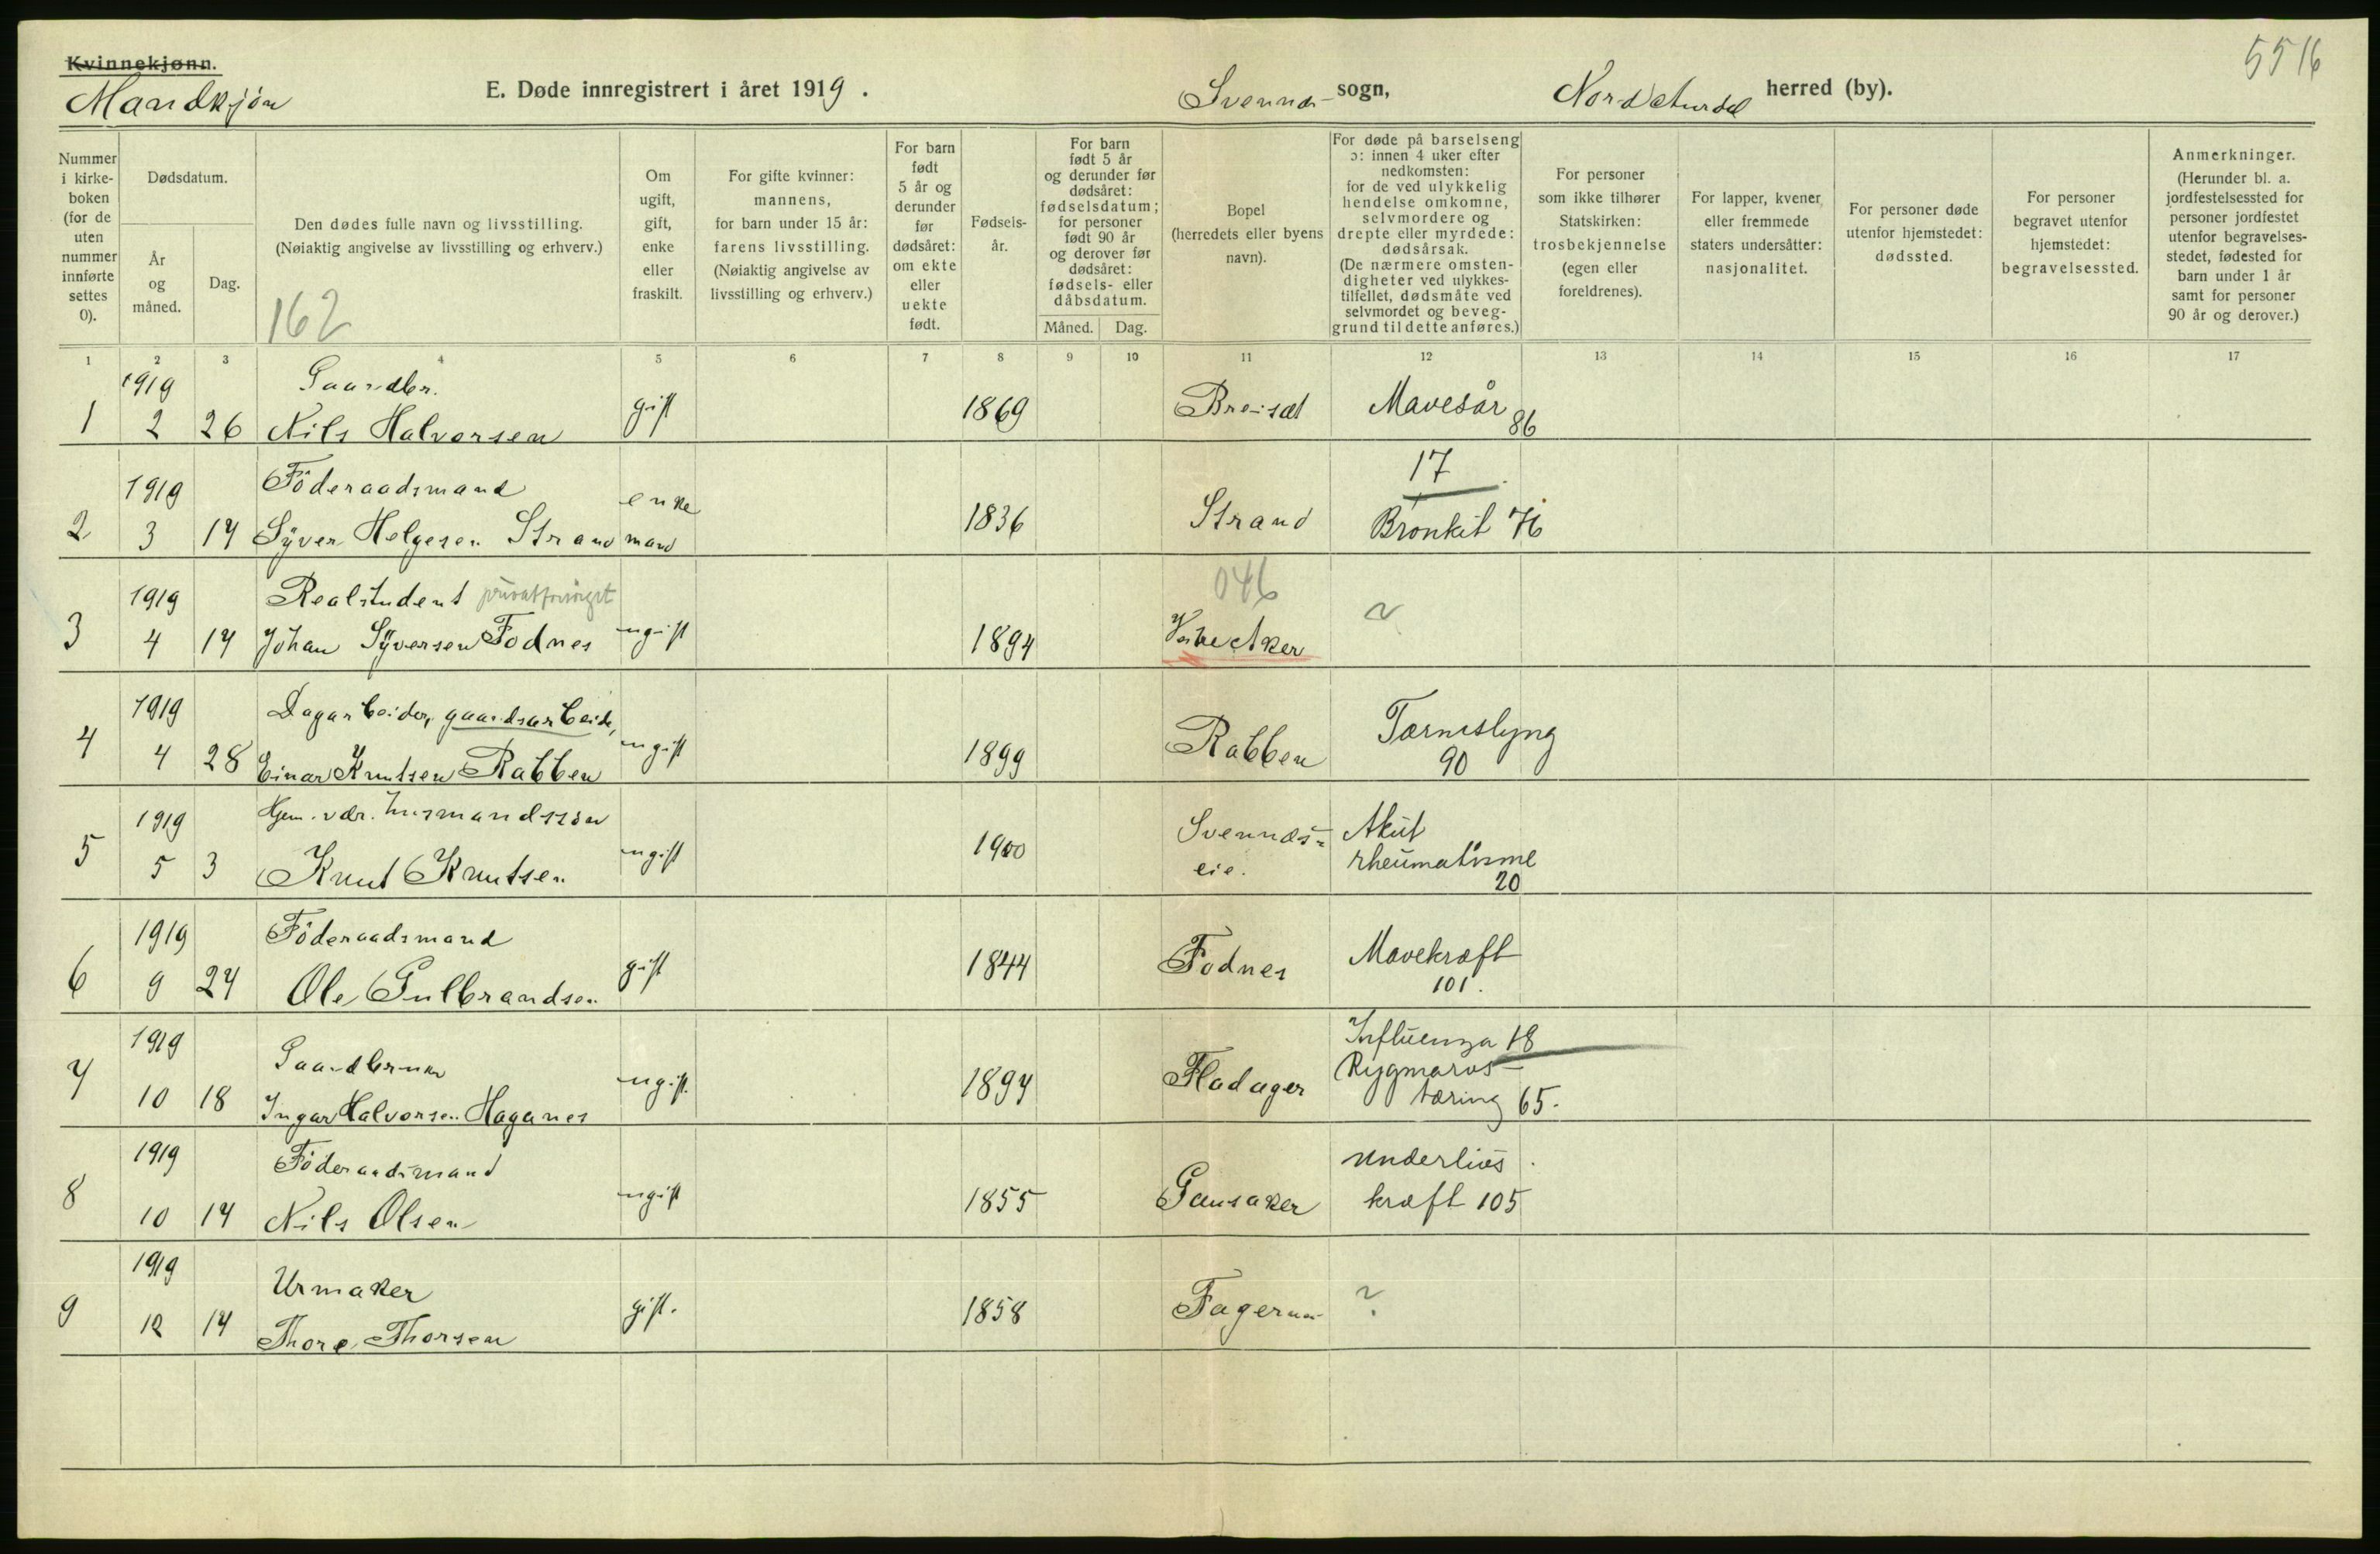 Kvinnekjønn.
Mandkjön
E. Døde innregistrert i året 1919.
Svennes sogn,
Nordaurdal herred (by).
5516
Nummer i kirkeboken (for de uten nummer innførte settes 0).
Dødsdatum.
År og måned.
Dag.
Den dødes fulle navn og livsstilling.
(Nøiaktig angivelse av livsstilling og erhverv.)
162
Om ugift, gift, enke eller fraskilt.
For gifte kvinner: mannens, for barn under 15 år: farens livsstilling. (Nøiaktig angivelse av livsstilling og erhverv.)
For barn født 5 år og derunder før dødsåret: om ekte eller uekte født.
Fødselsår.
For barn født 5 år og derunder før dødsåret: fødselsdatum; for personer født 90 år og derover før dødsåret: fødsels- eller dåbsdatum.
Måned.
Dag.
Bopel (herredets eller byens navn).
For døde på barselseng ɔ: innen 4 uker efter nedkomsten: for de ved ulykkelig hendelse omkomne, selvmordere og drepte eller myrdede: dødsårsak. (De nærmere omstendigheter ved ulykkestilfellet, dødsmåte ved selvmordet og beveggrund til dette anføres.)
For personer som ikke tilhører Statskirken: trosbekjennelse (egen eller foreldrenes).
For lapper, kvener eller fremmede staters undersåtter: nasjonalitet.
For personer døde utenfor hjemstedet: dødssted.
For personer begravet utenfor hjemstedet: begravelsessted.
Anmerkninger. (Herunder bl. a. jordfestelsessted for personer jordfestet utenfor begravelsesstedet, fødested for barn under 1 år samt for personer 90 år og derover.)
1 2 3 4 5 6 7 8 9 10 11 12 13 14 15 16 17
1919 Gaardbr.
1 2 26 Nils Halvorsen gift 1869 Breisæt Mavesår 86
1919 Föderaadsmand enke 17
2 3 14 Syver Helgesen Strand mand 1836 Strand Bronkit 76
1919 Realstudent 046
3 4 14 Johan Syversen Fodnes ugift 1894 ?
1919 Dagarbeider, gaardsarbeide,
4 4 28 Einar Knutsen Rabben ugift 1899 Rabben Tarmslyng 90
1919 Hjem. vær. husmandssön Svennes- Akut
5 5 3 Knut Knutsen ugift 1900 eie. rheumatisme 20
1919 Föderaadsmand
6 9 24 Ole Gulbrandsen gift 1844 Fodnes Mavekræft 101.
1919 Gaardbruker Influenza 18
7 10 18 Ingar Halvorsen Haganes ugift. 1894 Fladager Rygmarvstæring 65.
1919 Föderaadsmand Underlivs
8 10 14 Nils Olsen ugift 1855 Gausaker kræft 105
1919 Urmaker
9 12 14 Thore Thorsen gift. 1858 Fagernes ?